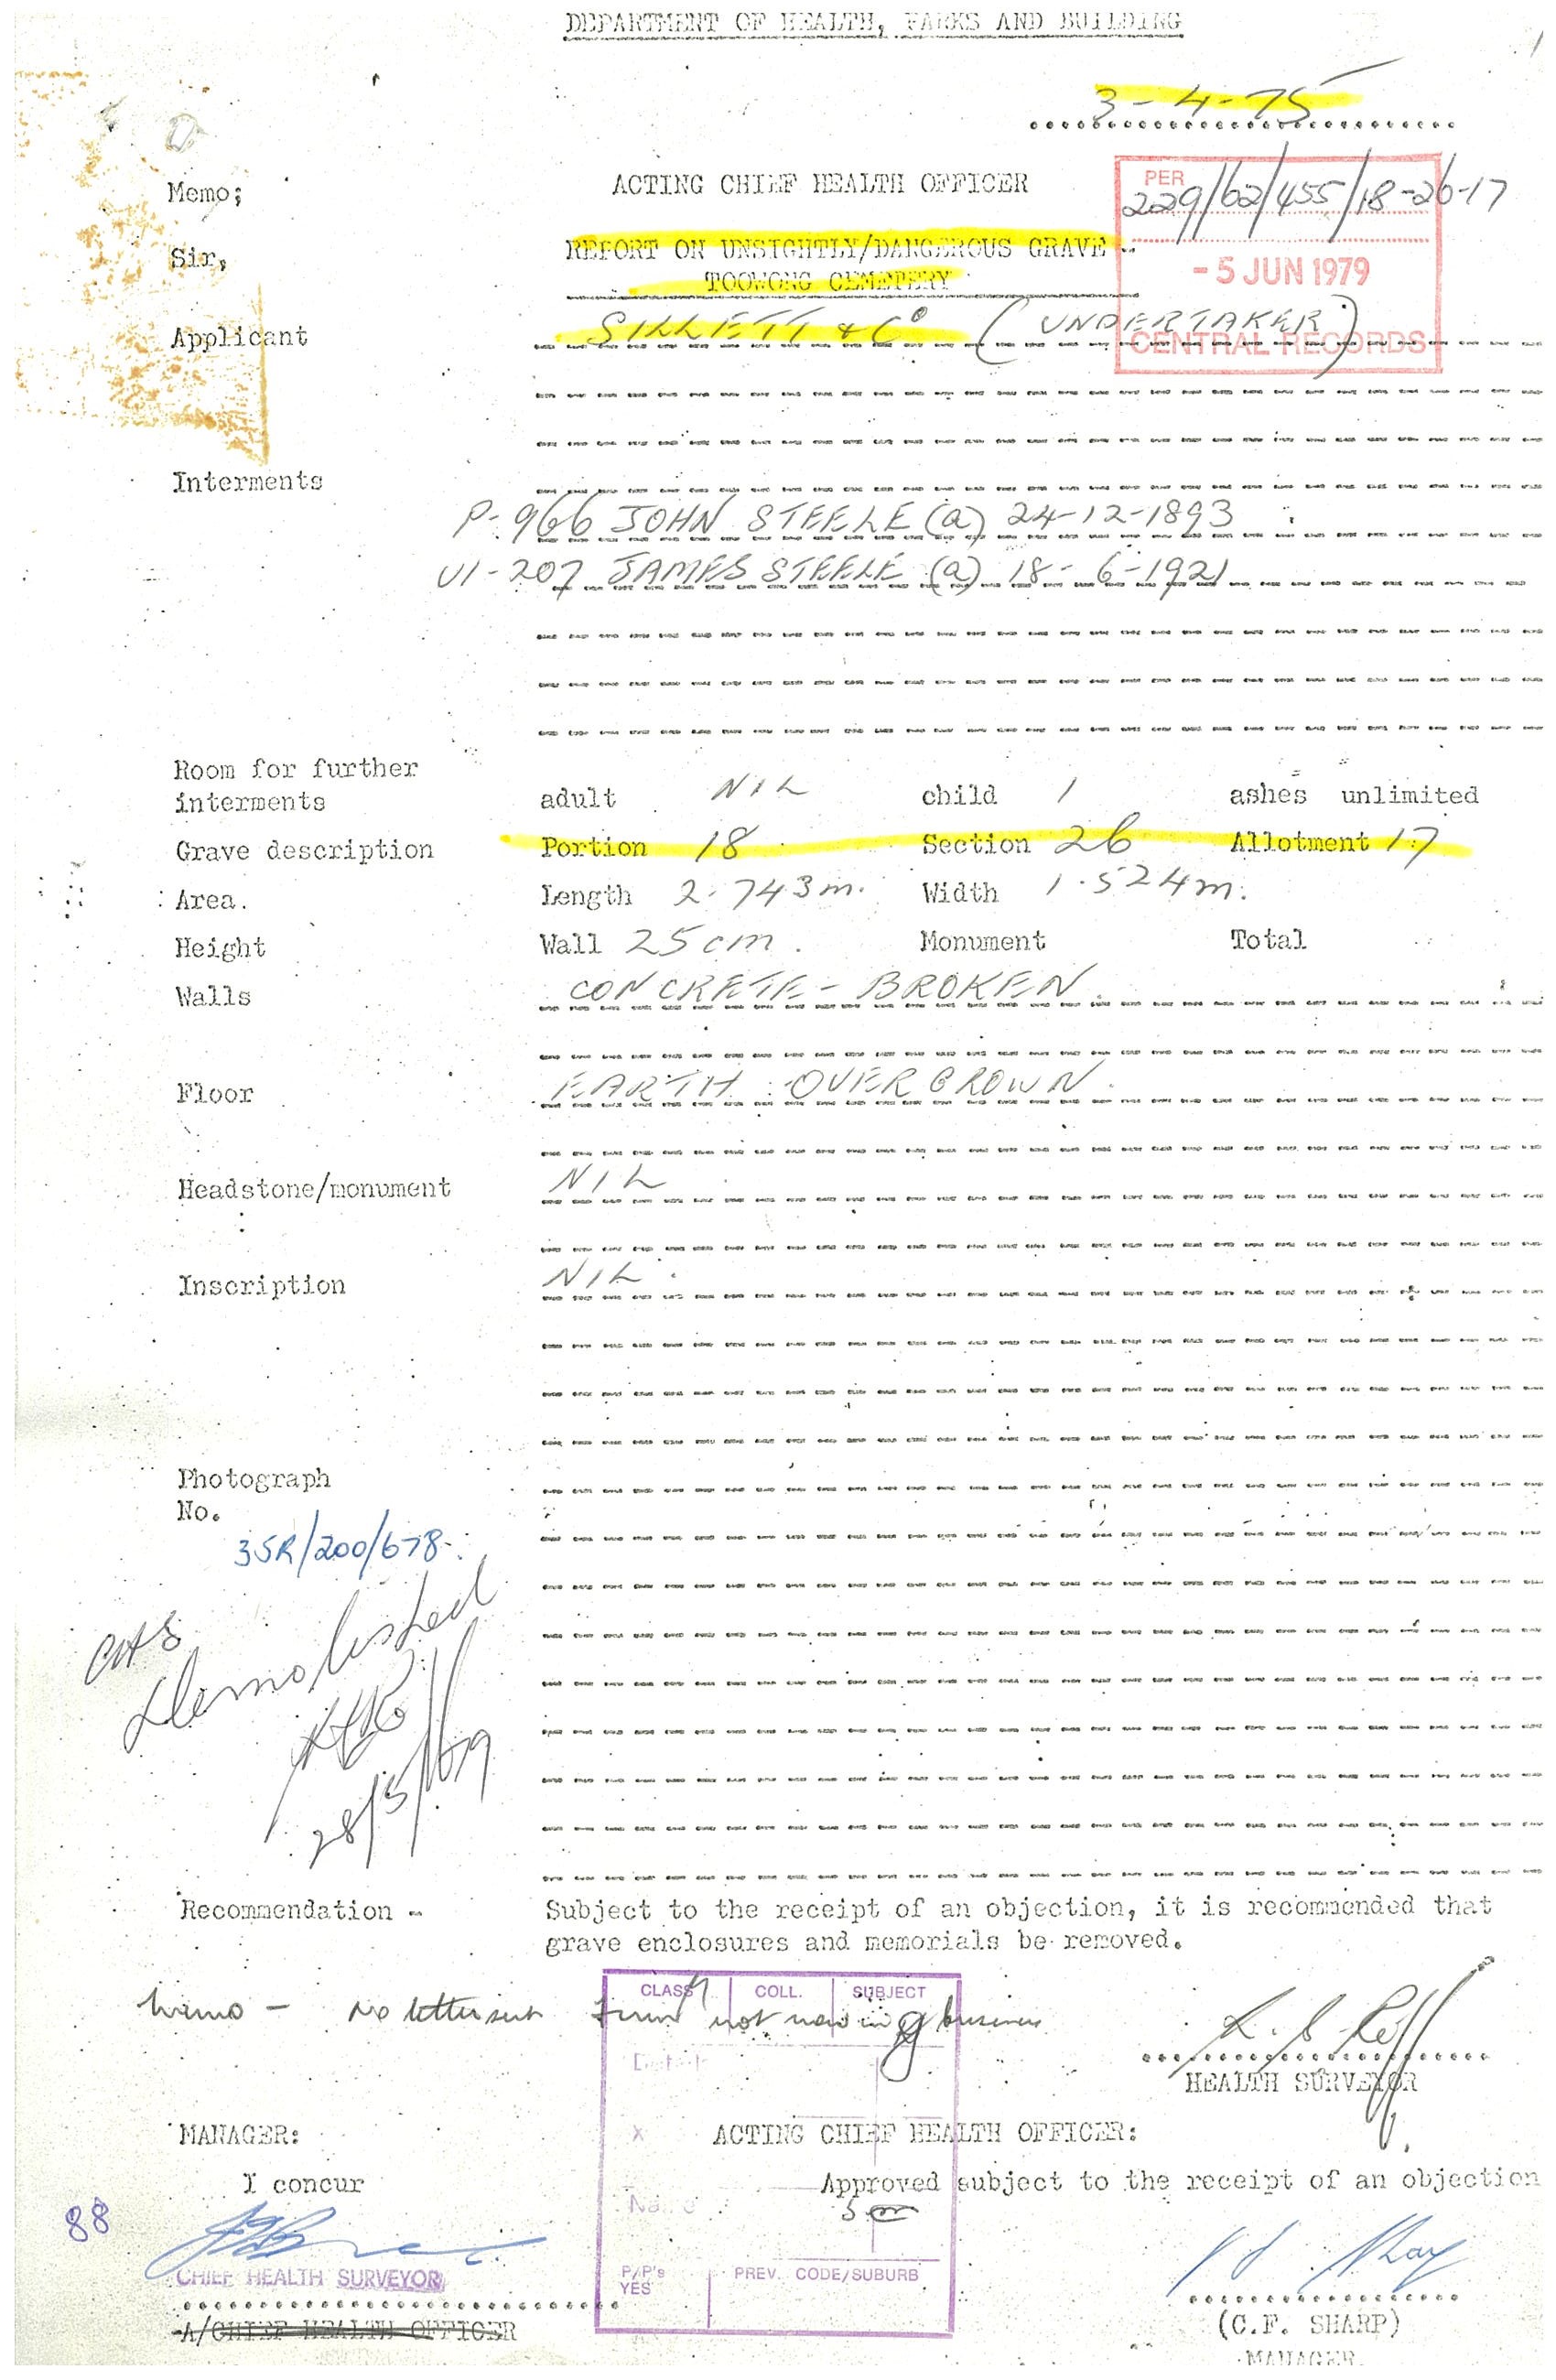 DEPARTMENT OF HEALTH, PARKS AND BUILDING
3-4-75
Memo;
ACTING CHIEF HEALTH OFFICER
PER
229/62/455/18-26-17
Sir,
REPORT ON UNSIGHTLY/DANGEROUS GRAVE -
TOOWONG CEMETERY
- 5 JUN 1979
Applicant
SILLETT & Co (UNDERTAKER)
CENTRAL RECORDS
Interments
P-966 JOHN STEELE (a) 24-12-1893
U1-207 JAMES STEELE (a) 18-6-1921
Room for further
interments adult NIL child 1 ashes unlimited
Grave description Portion 18 Section 26 Allotment 17
Area. Length 2.743m. Width 1.524m.
Height Wall 25cm. Monument Total
Walls CONCRETE - BROKEN.
Floor EARTH OVERGROWN.
Headstone/monument NIL
Inscription NIL.
Photograph
No.
35R/200/678
Demolished
28/5/79
Recommendation - Subject to the receipt of an objection, it is recommended that
grave enclosures and memorials be removed.
CLASS COLL. SUBJECT
No letter sent Firm not now in business
HEALTH SURVEYOR
MANAGER: ACTING CHIEF HEALTH OFFICER:
X
I concur Approved subject to the receipt of an objection
Name
88
CHIEF HEALTH SURVEYOR
P/P's
YES
PREV. CODE/SUBURB
A/CHIEF HEALTH OFFICER
(C.F. SHARP)
MANAGER